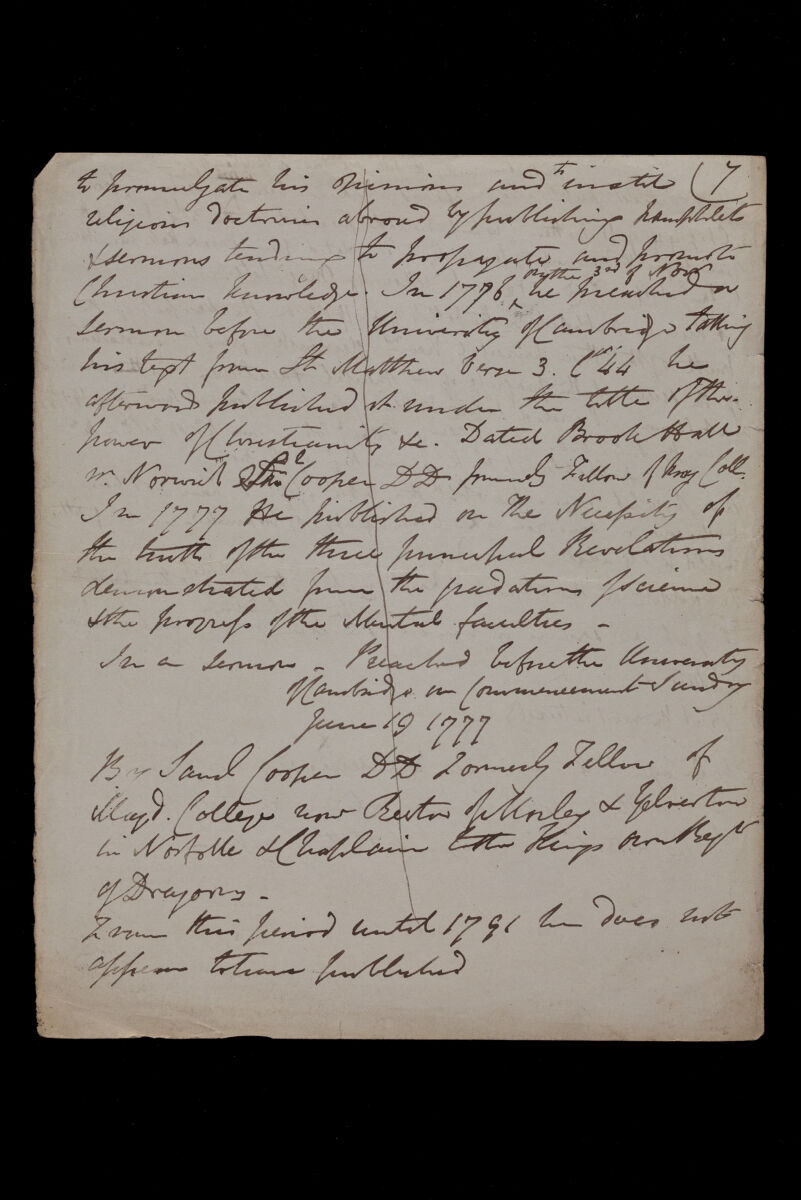 to promulgate his opinions and to instil (7
religious doctrines abroad by publishing pamphlets
& sermons tending to propagate and promote
Christian knowledge. In 1776 on the 3rd of Novr he preached a
sermon before the University of Cambridge taking
his text from St Matthew Verse 3. 44 he
afterwards published it under the title of the
power of Christianity &c. Dated Brooke Hall
nr. Norwich Cooper DD formerly Fellow of Coll.
In 1777 He published on The Necessity of
the truth of the three principal Revelations
demonstrated from the gradations of science
& the progress of the Mental faculties -
In a sermon - Preached before the University
of Cambridge on Commencement Sunday
June 19 1777
By Saml Cooper DD Formerly Fellow of
Magd. College now Rector of Morley & Yelverton
in Norfolk & Chaplain to the Kings own Regt
of Dragoons -
From this period until 1791 he does not
appear to have published